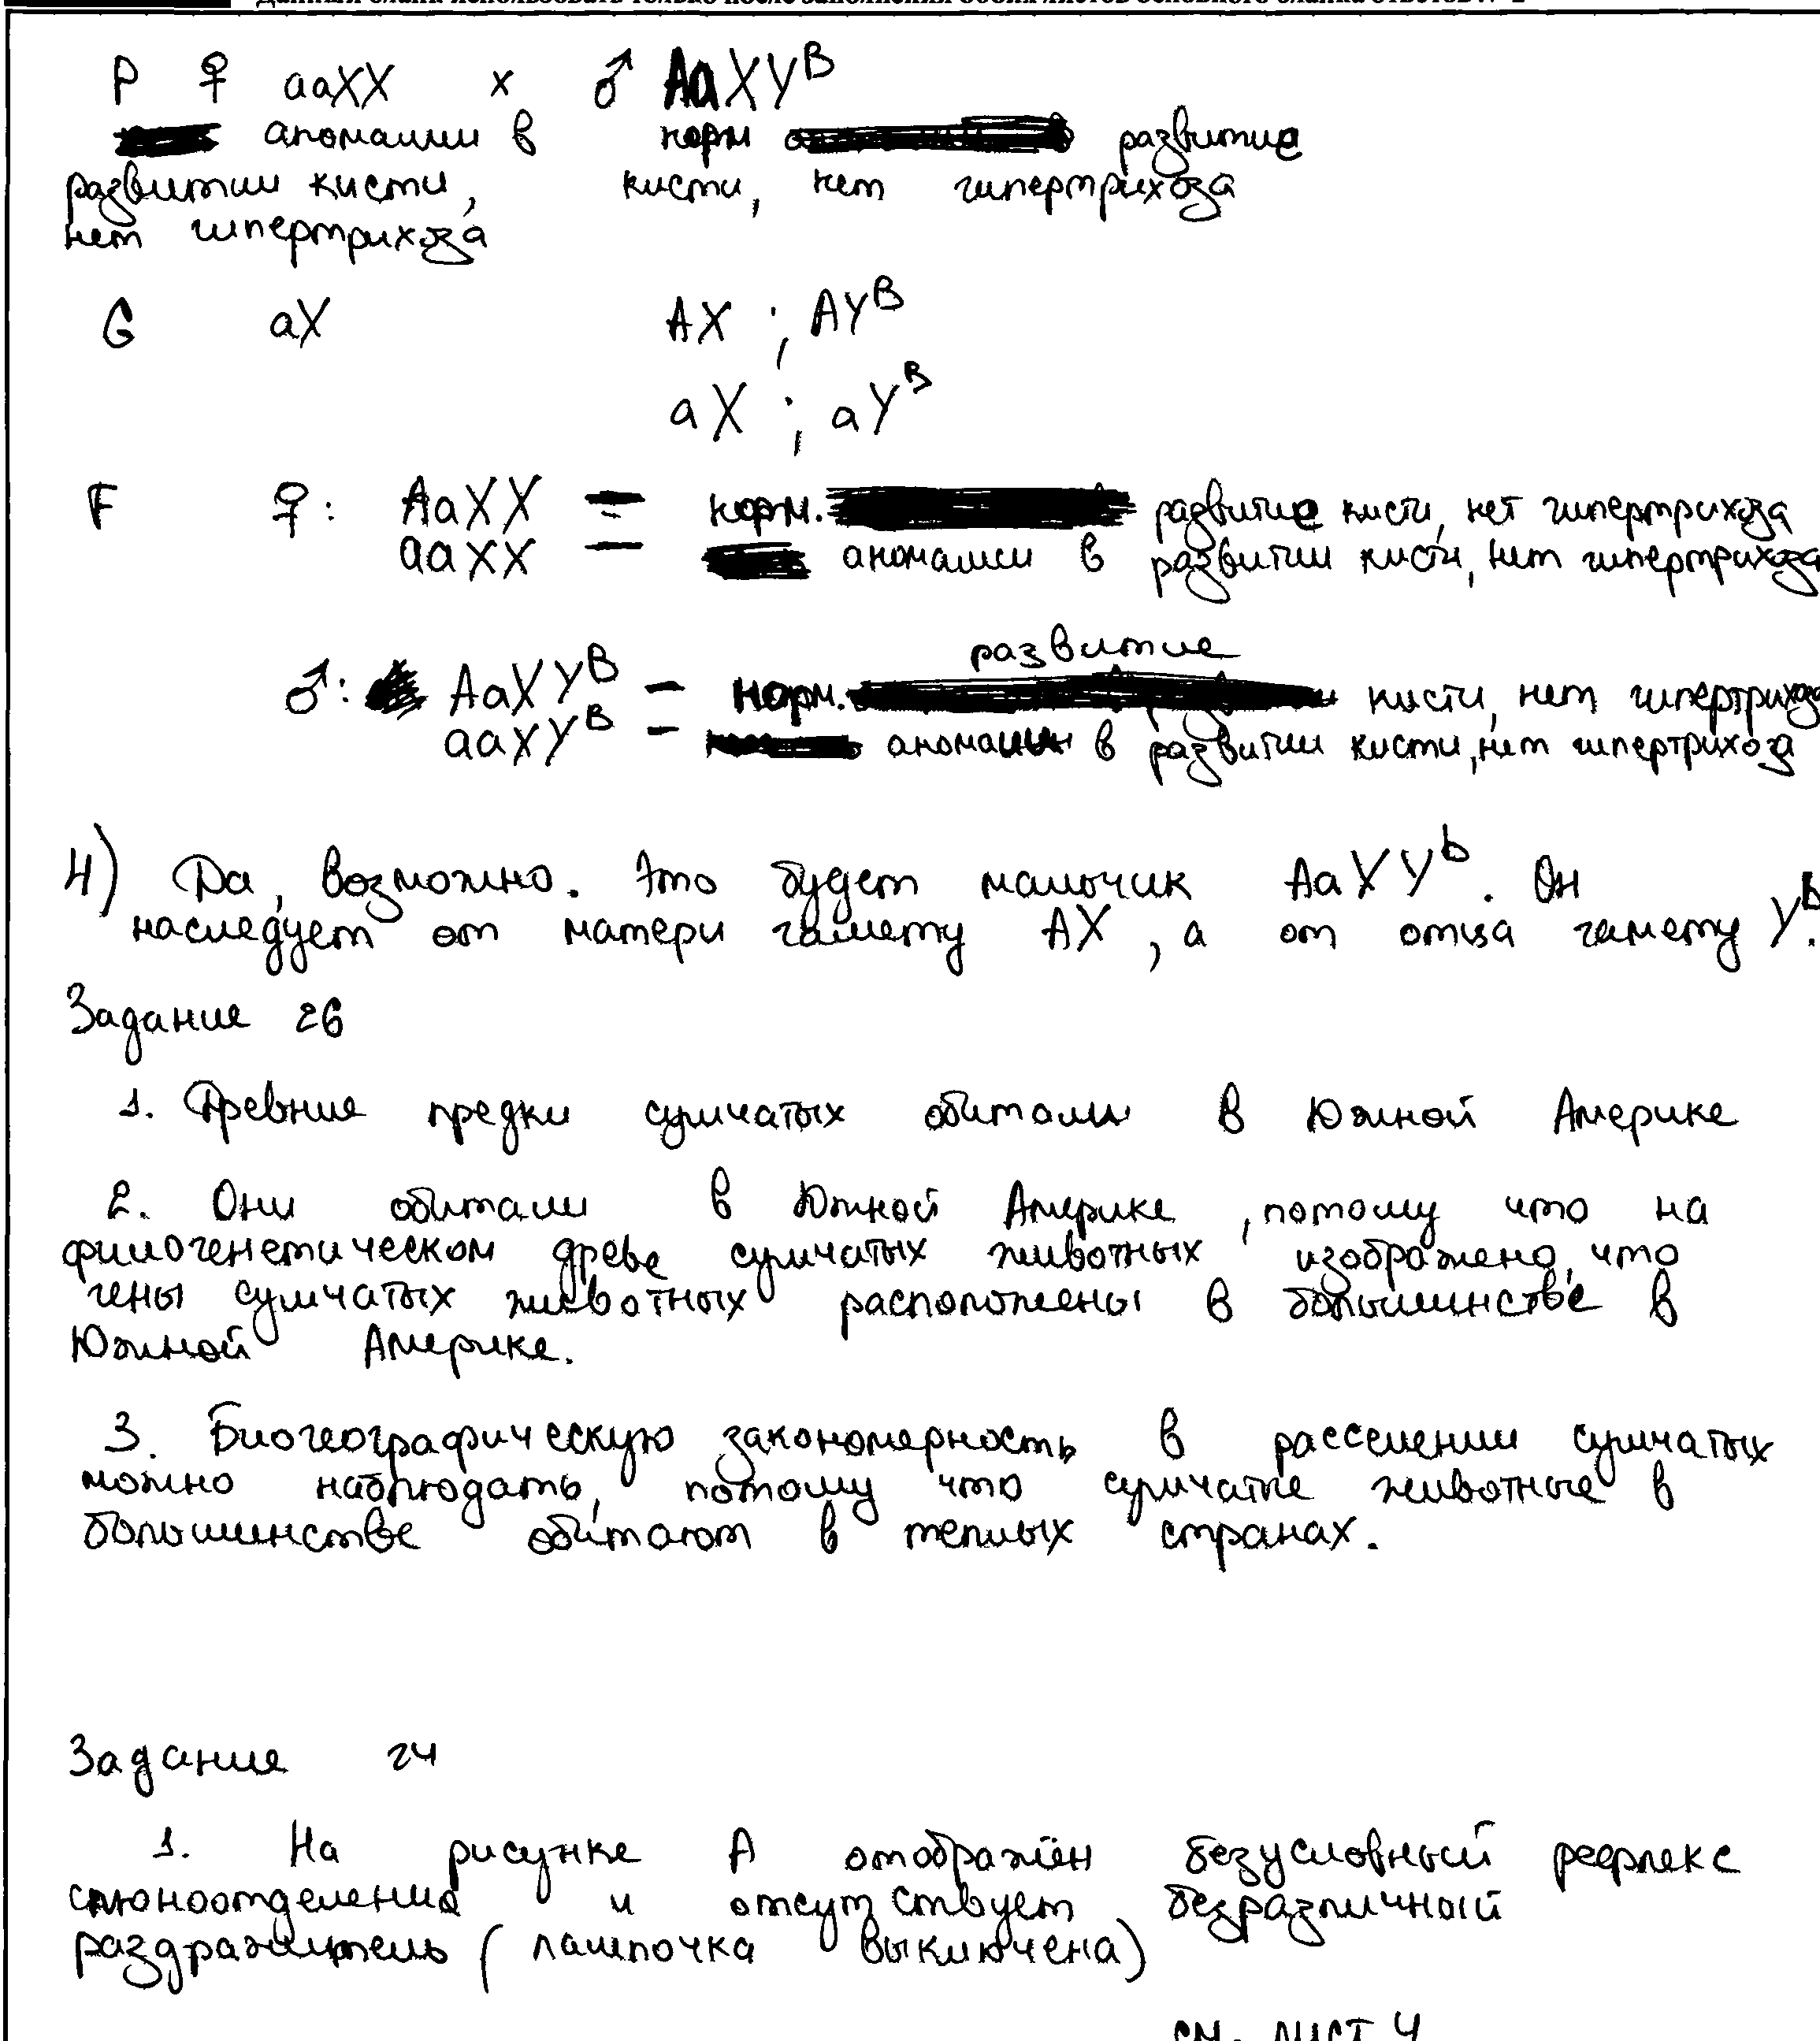 Р ♀ aaXX x ♂ AaXYᴮ
аномалии в норм развитие
развитии кисти, кисти, нет гипертрихоза
нет гипертрихоза
G aX AX ; AYᴮ
aX ; aYᴮ
F ♀: AaXX — норм. развитие кисти, нет гипертрихоза
aaXX — аномалии в развитии кисти, нет гипертрихоза
развитие
♂: AaXYᴮ — норм. кисти, нет гипертрихоза
aaXYᴮ — аномалии в развитии кисти, нет гипертрихоза
4) Да, возможно. Это будет мальчик AaXYᵇ. Он
наследует от матери гамету AX, а от отца гамету Yᵇ.
Задание 26
1. Древние предки сумчатых обитали в Южной Америке
2. Они обитали в Южной Америке, потому что на
филогенетическом древе сумчатых животных изображено, что
гены сумчатых животных расположены в большинстве в
Южной Америке.
3. Биогеографическую закономерность в расселении сумчатых
можно наблюдать, потому что сумчатые животные в
большинстве обитают в теплых странах.
Задание 24
1. На рисунке А отображён безусловный рефлекс
слюноотделения и отсутствует безразличный
раздражитель (лампочка выключена)
см. лист 4